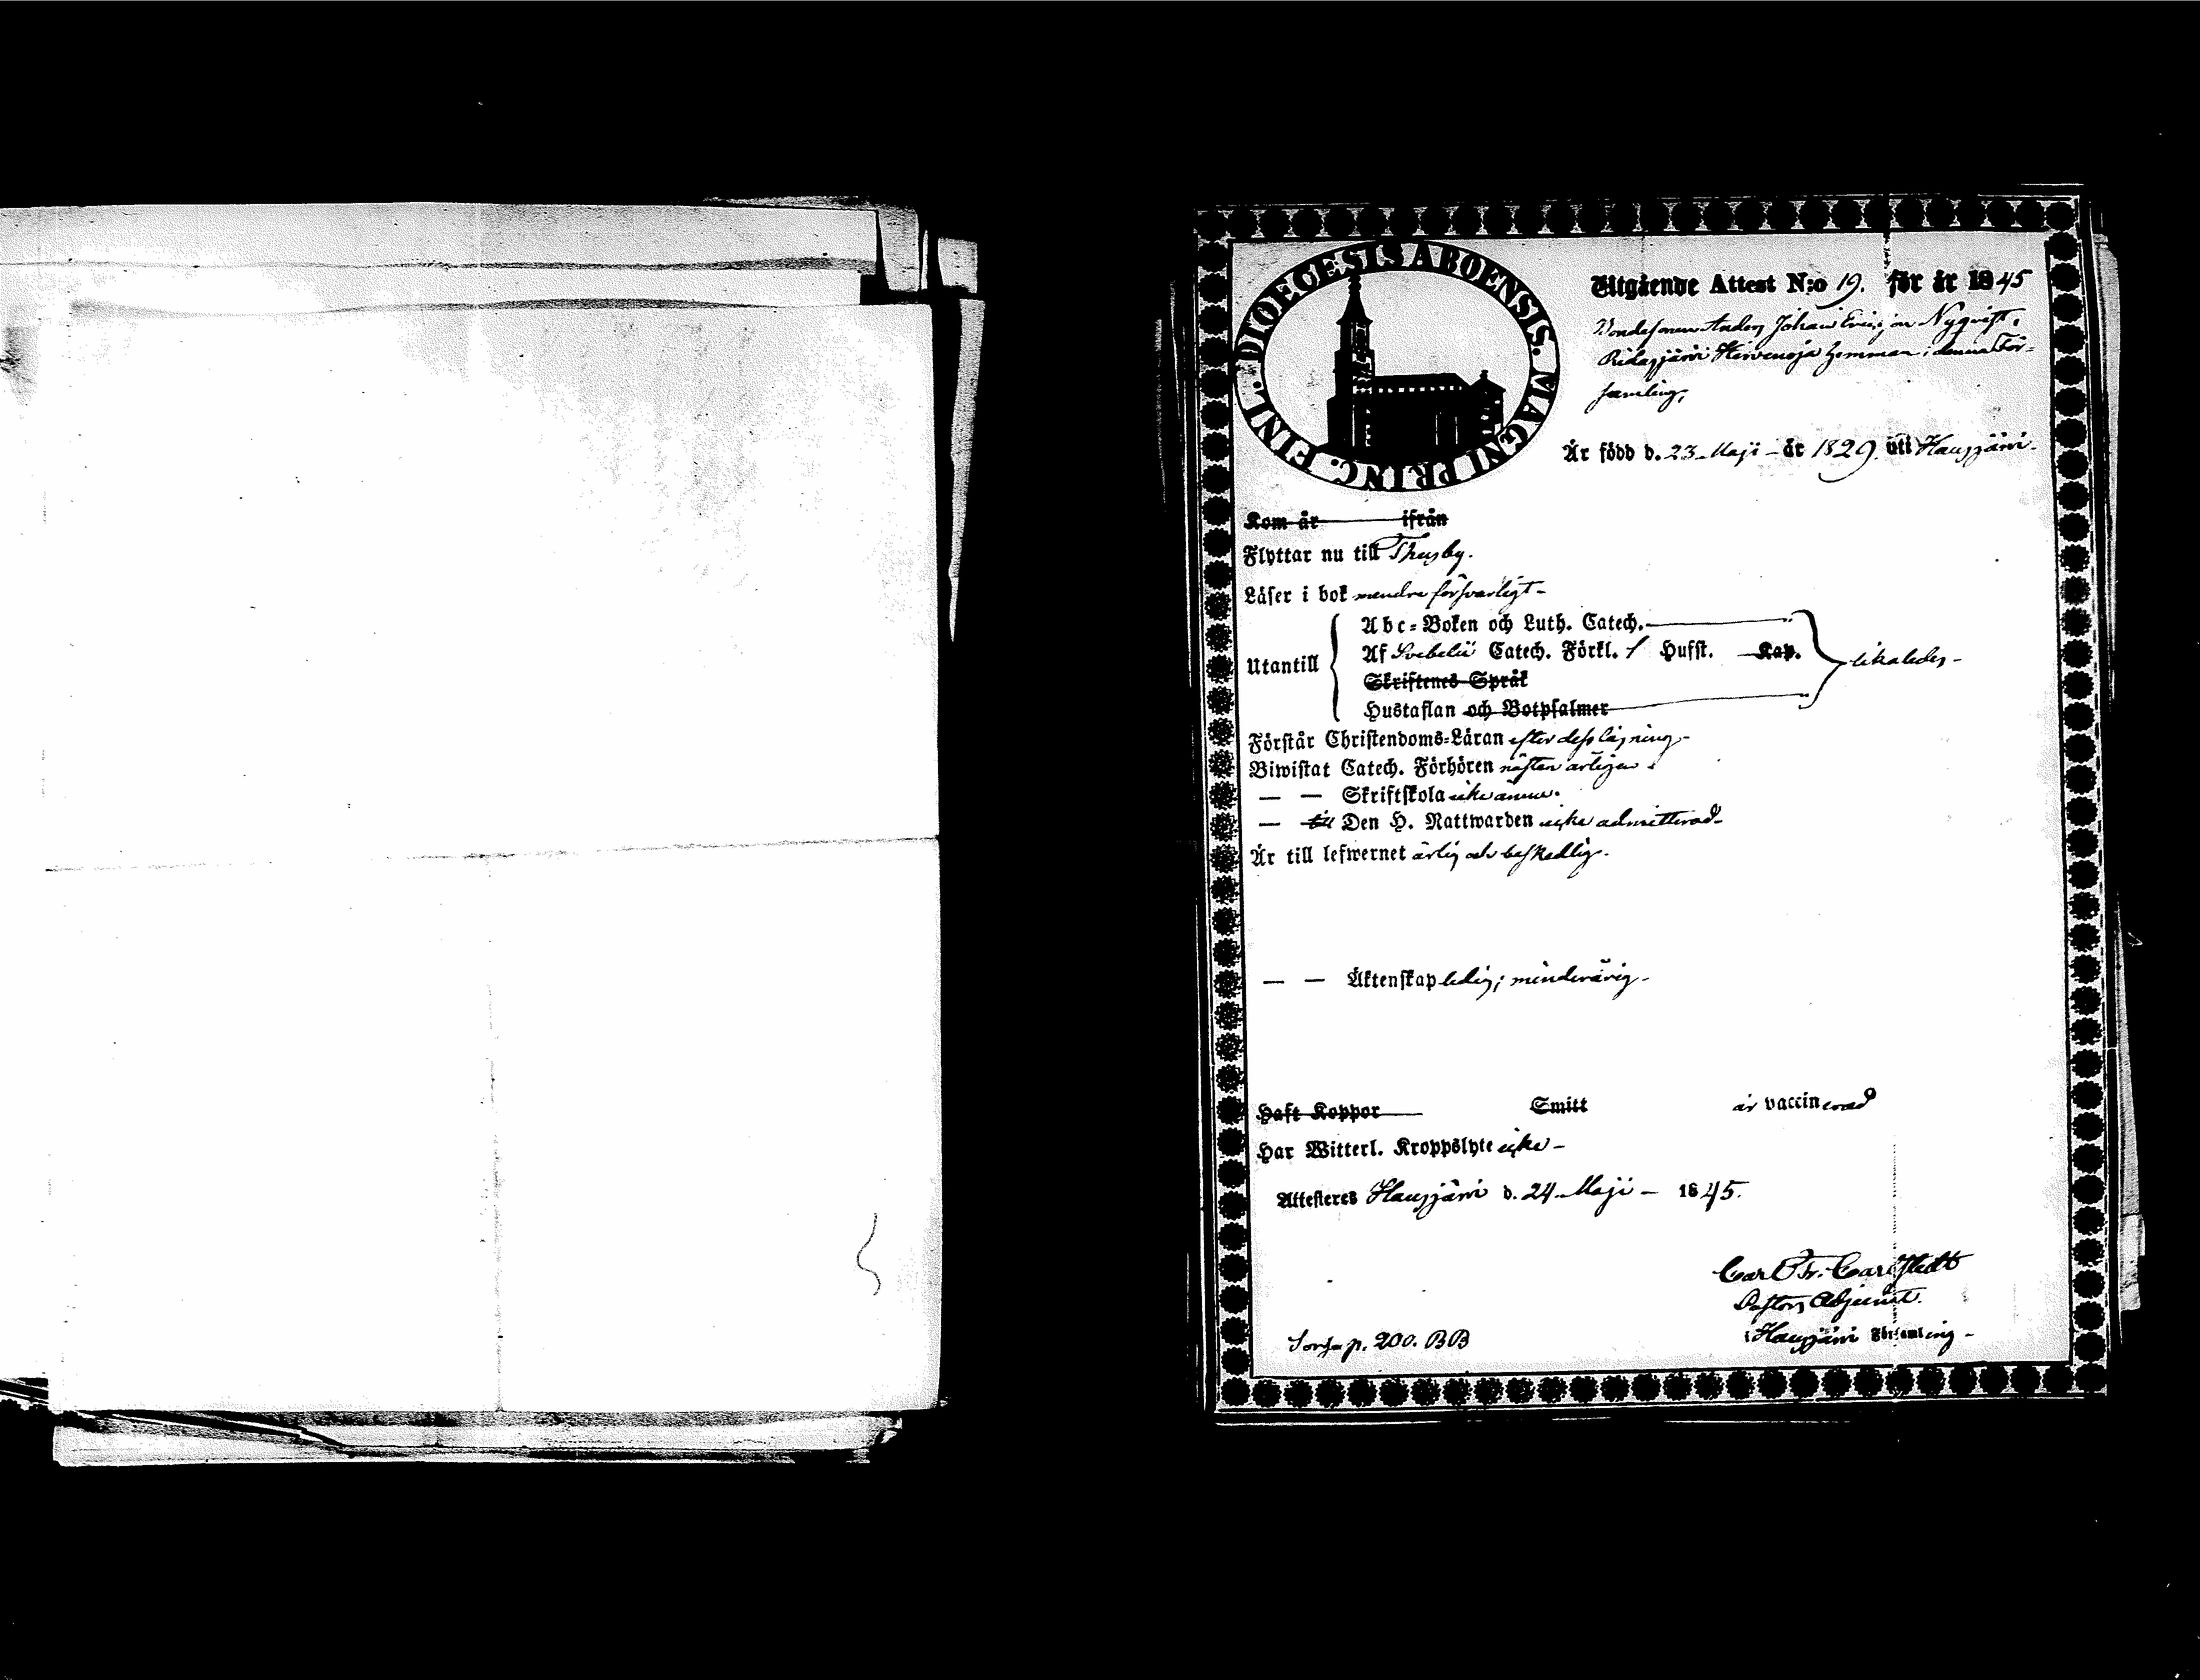 FINL. DIOECESIS ABOENSIS. MAGNI PRINC.
Utgående Attest N:o 19. för år 1845
Bondesonen Anders Johan Ericsson Nyqvist,
Ridasjärvi Hirvenoja hemman i denna För-
samling,
Är född d. 23 Maji - år 1829. uti Hausjärvi.
Kom år ifrån
Flyttar nu till Thusby.
Läser i bok mendre försvarligt -
Utantill
Abc-Boken och Luth. Catech.
Af Svebelii Catech. Förkl. / Husst. Kap.
Skriftenes Språk
Hustaflan och Botpsalmer
likaledes -
Förstår Christendoms-Läran efter dess läsning -
Biwistat Catech. Förhören nästan årligen.
— — Skriftskola icke ännu.
— till Den H. Nattwarden icke admitterad -
Är till lefwernet ärlig och beskedlig.
— — Äktenskap ledig; minderårig -
Haft Koppor Smitt är vaccinerad
Har Witterl. Kroppslyte icke -
Attesteres Hausjärvi d. 24 Maji - 1845.
Carl Fr. Carlstedt
Pastors Adjunct.
i Hausjärvi Församling -
p. 200. BB